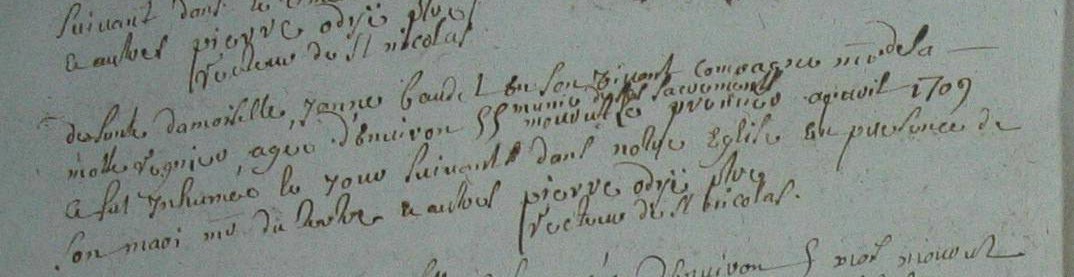 suivant dans le
& autres pierre odye ptre
recteur de st nicolas
defunte damoiselle janne baudet en son vivant compagne mr dela
motte regnier agee d'environ 55 munie des sacrements mourut le premier apvril 1709
& fut inhumée le jour suivant dans notre Eglise en presence de
son mari mr du & autres pierre odye ptre
recteur de st nicolas.
d'environ 5 mois mourut